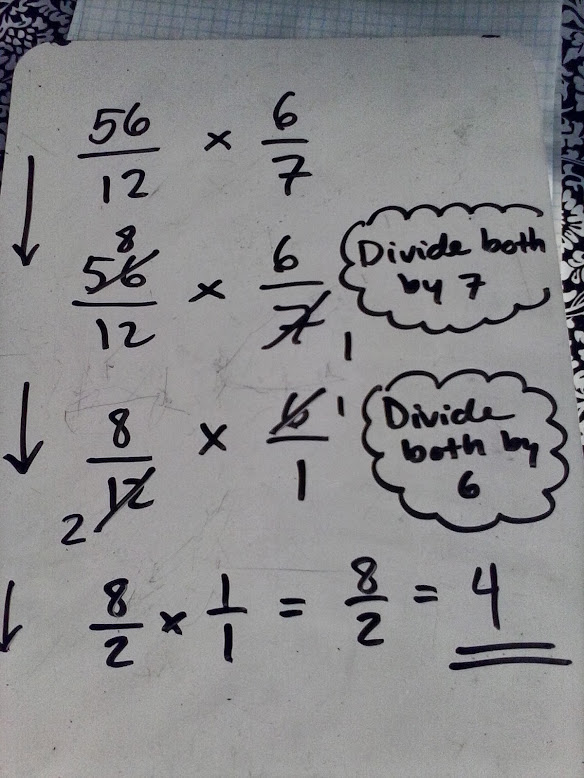 56/12 × 6/7
8
56/12 × 6/7 1
Divide both
by 7
8/12 × 6/1 1
2
Divide
both by
6
8/2 × 1/1 = 8/2 = 4